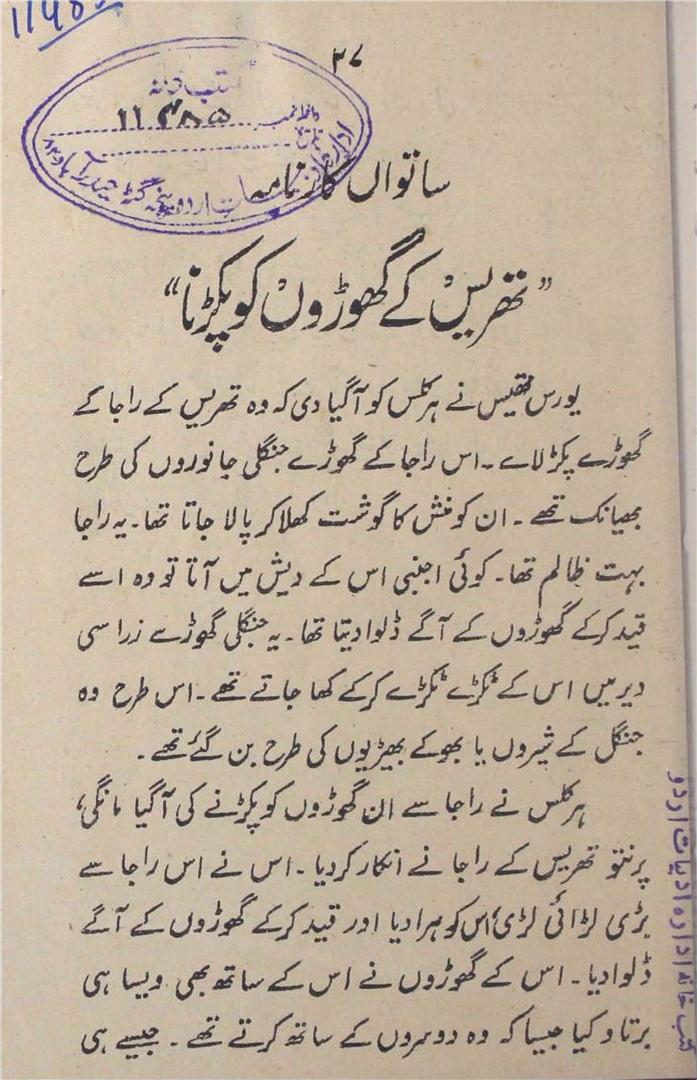 11485
۳۷
کتب خانہ
داخلہ نمبر ۱۱۴۸۵
تاریخ
ادارہ ادبیات اردو پنجہ گٹہ حیدرآباد ۸۲
ساتواں کارنامہ
”تھریس کے گھوڑوں کو پکڑنا“
یورس تھیس نے ہرکلس کو آگیا دی کہ وہ تھریس کے راجا کے
گھوڑے پکڑ لاے ۔ اس راجا کے گھوڑے جنگلی جانوروں کی طرح
بھیانک تھے ۔ ان کو منش کا گوشت کھلا کر پالا جاتا تھا ۔ یہ راجا
بہت ظالم تھا ۔ کوئی اجنبی اس کے دیش میں آتا تو وہ اسے
قید کرکے گھوڑوں کے آگے ڈلوا دیتا تھا ۔ یہ جنگلی گھوڑے زرا سی
دیر میں اس کے ٹکڑے ٹکڑے کرکے کھا جاتے تھے ۔ اس طرح وہ
جنگل کے شیروں یا بھوکے بھیڑیوں کی طرح بن گئے تھے ۔
ہرکلس نے راجا سے ان گھوڑوں کو پکڑنے کی آگیا مانگی،
پرنتو تھریس کے راجا نے انکار کردیا ۔ اس نے اس راجا سے
بڑی لڑائی لڑی، اس کو ہرا دیا اور قید کرکے گھوڑوں کے آگے
ڈلوا دیا ۔ اس کے گھوڑوں نے اس کے ساتھ بھی ویسا ہی
برتاو کیا جیسا کہ وہ دوسروں کے ساتھ کرتے تھے ۔ جیسے ہی
کتب خانہ ادارہ ادبیات اردو